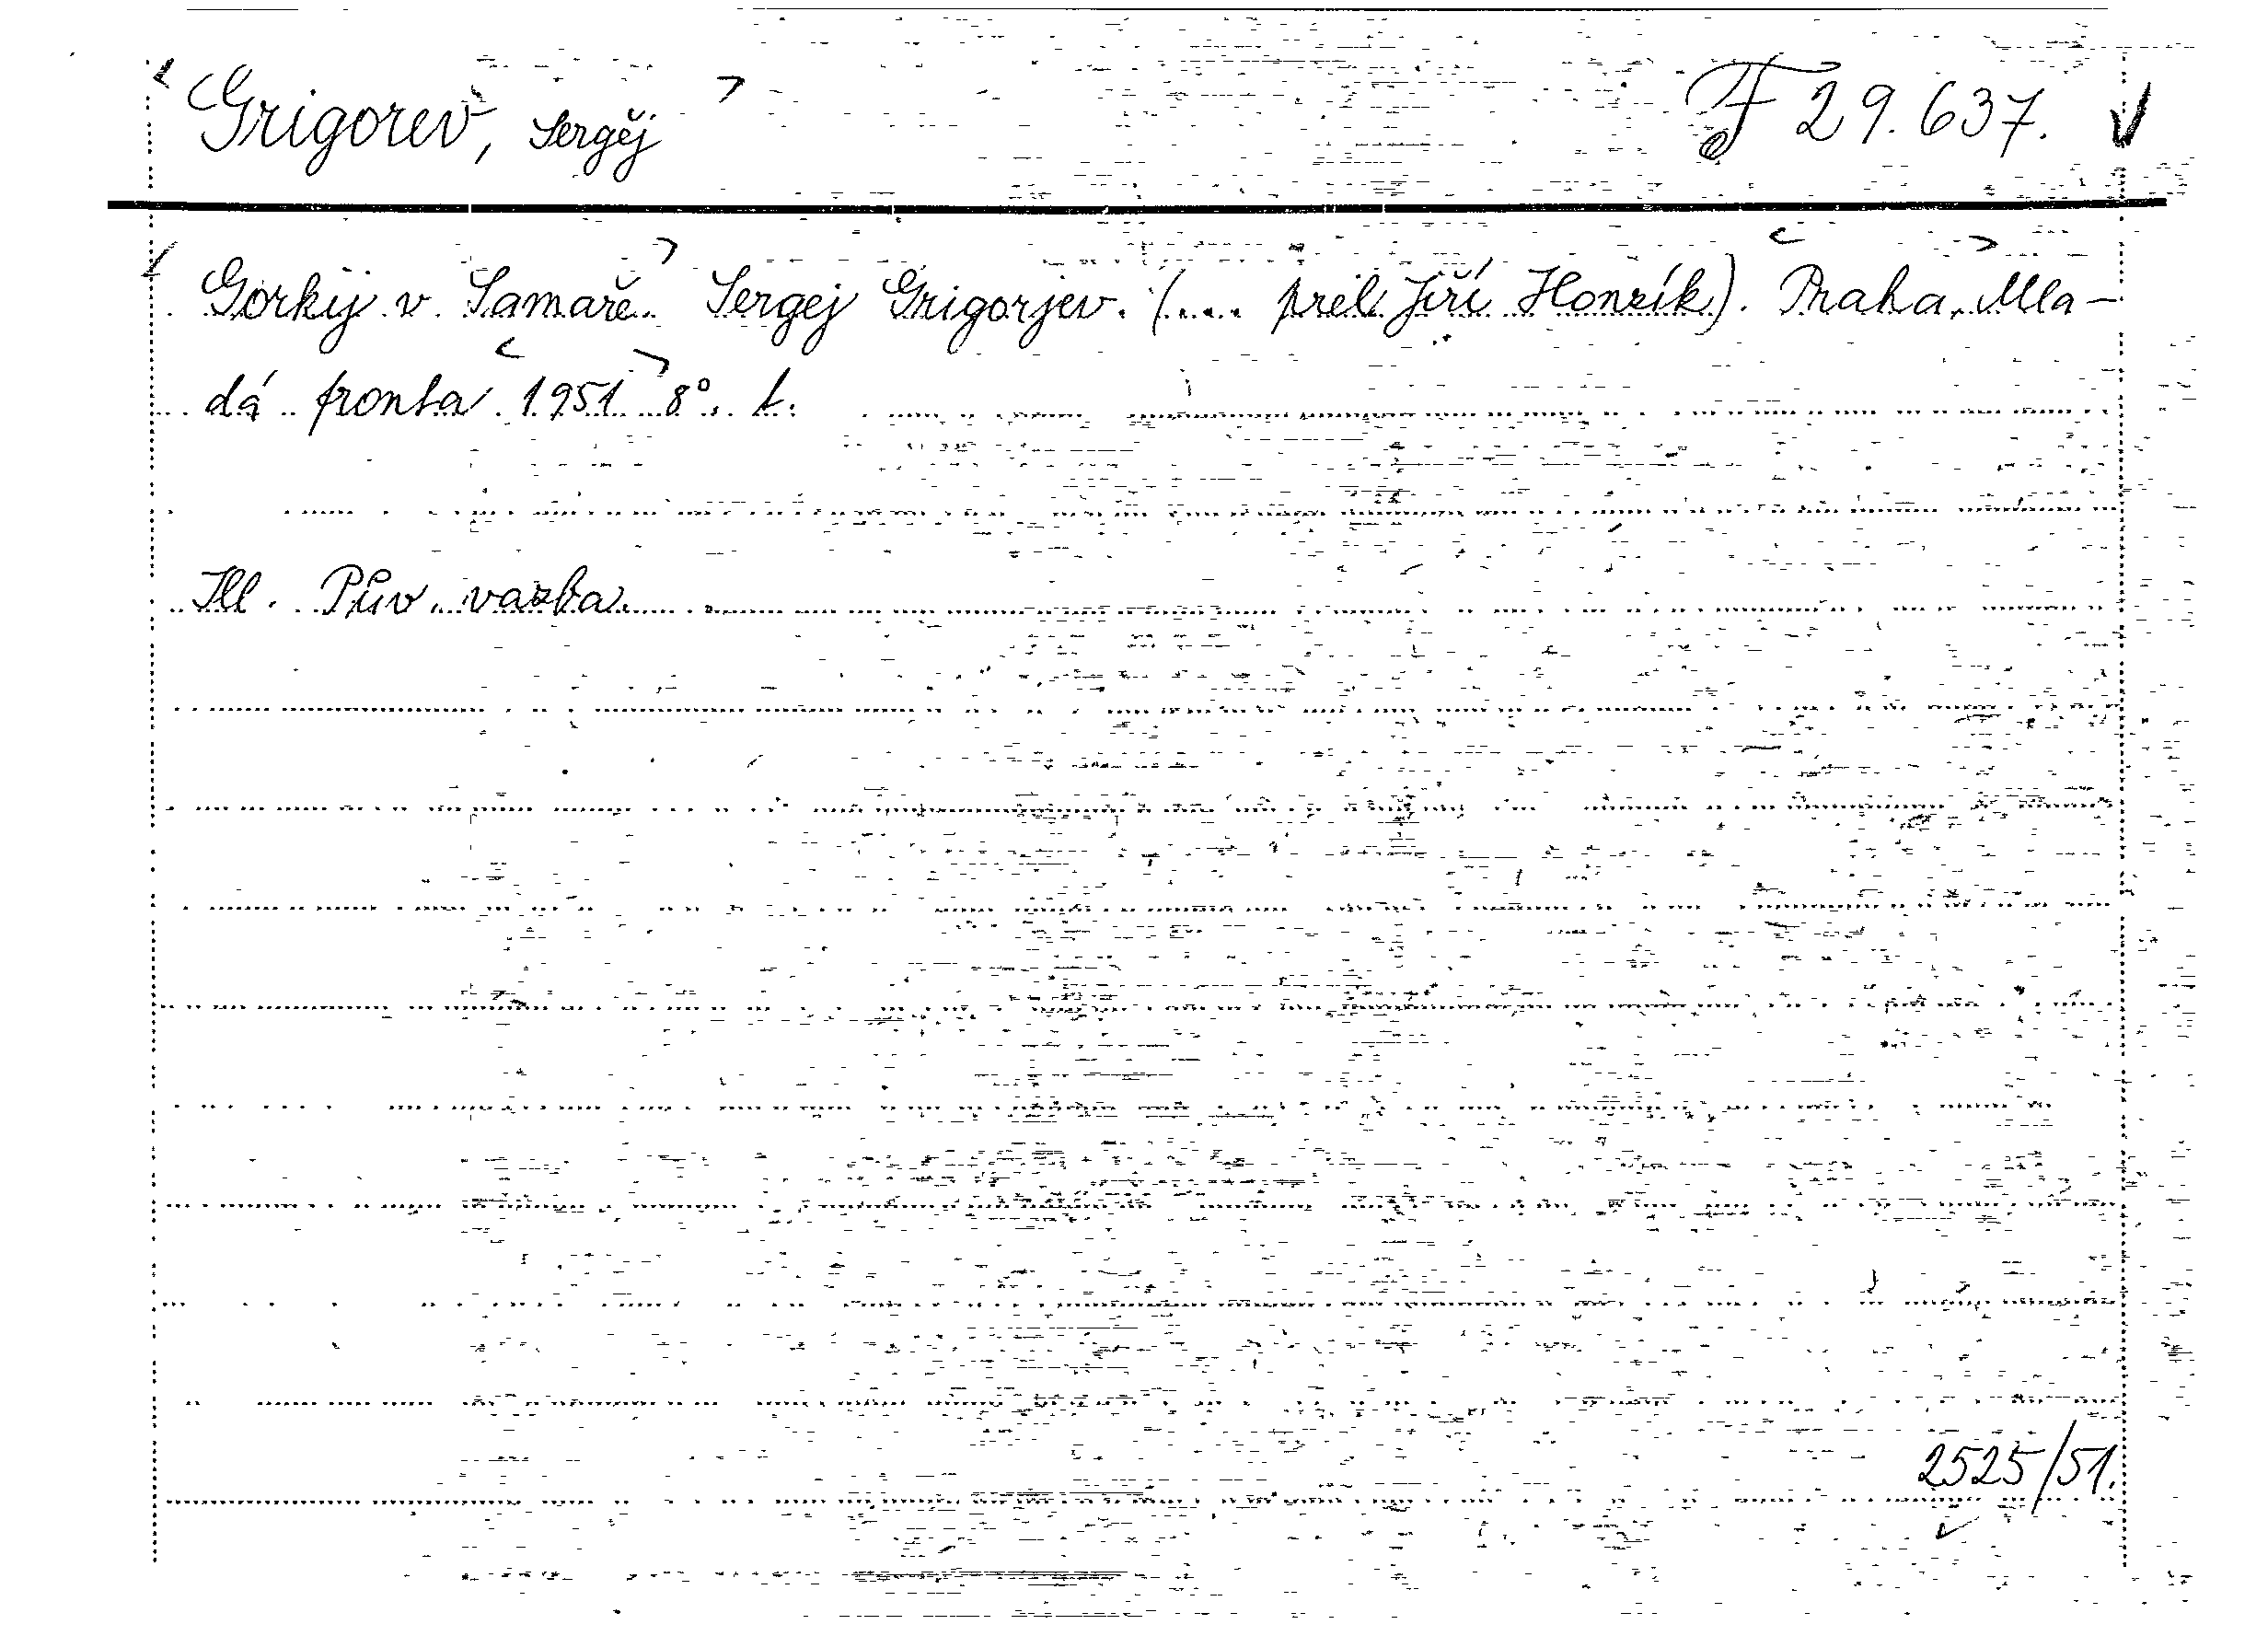 Grigorev, Sergěj F 29.637.
Gorkij v Samaře. Sergej Grigorjev. (.... přel. Jiří Honzík). Praha, Mla-
dá fronta 1951 8°. t.
Ill. Pův. vazba.
2525/51.